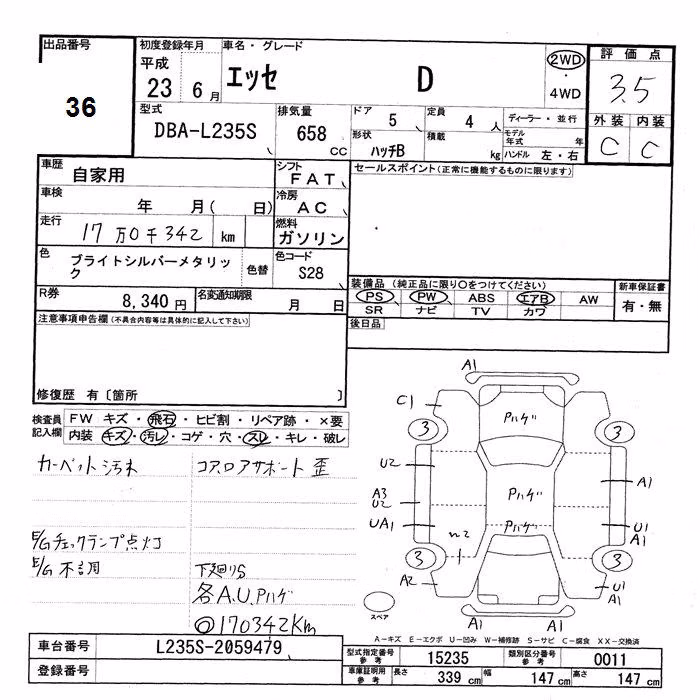 出品番号
36
初度登録年月
平成
23 6月
車名・グレード
エッセ D
2WD
・
4WD
評価点
3.5
外装 内装
C C
型式
DBA-L235S
排気量
658 CC
ドア
5
定員
4 人
形状
ハッチB
積載
kg
ディーラー・並行
モデル年式 年
ハンドル 左・右
車歴
自家用
シフト
FAT
車検
年 月( 日)
冷房
AC
走行
17万0千342 km
燃料
ガソリン
色
ブライトシルバーメタリック
色替
色コード
S28
R券
8,340円
名変通知期限
月 日
セールスポイント(正常に機能するものに限ります)
装備品(純正品に限り○をつけてください)
PS PW ABS エアB AW
SR ナビ TV カワ
新車保証書
有・無
後日品
注意事項申告欄(不具合内容等は具体的に記入して下さい)
修復歴 有〔箇所 〕
検査員記入欄
FW キズ・飛石・ヒビ割・リペア跡・×要
内装 キズ・汚レ・コゲ・穴・スレ・キレ・破レ
カーペット汚れ
コアロアサポート歪
E/Gチェックランプ点灯
E/G不調
下廻りS
各A.U.Pハゲ
◎170342Km
A1
C1
Pハゲ
3 3
U2
A3
U2
UA1
Pハゲ
Pハゲ
A1
U1
A1
3 3
A2
U1
A1
A1 A1
スペア
A-キズ E-エクボ U-凹み W-補修跡 S-サビ C-腐食 XX-交換済
車台番号
L235S-2059479
登録番号
型式指定番号
参考
15235
類別区分番号
参考
0011
車庫証明用
参考
長さ 339 cm 幅 147 cm 高さ 147 cm